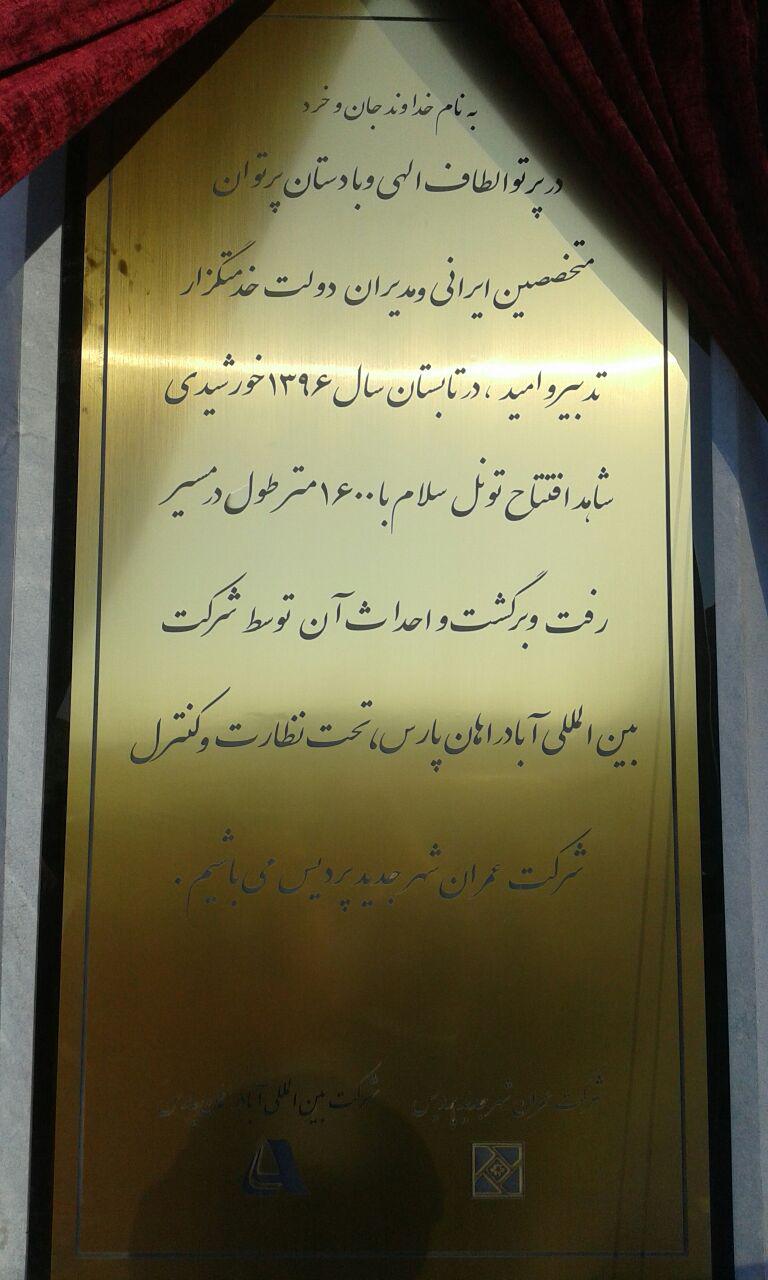 به نام خداوند جان و خرد
در پرتو الطاف الهی و با دستان پرتوان
متخصصین ایرانی و مدیران دولت خدمتگزار
تدبیر و امید ، در تابستان سال ۱۳۹۶ خورشیدی
شاهد افتتاح تونل سلام با ۱۶۰۰ متر طول در مسیر
رفت و برگشت و احداث آن توسط شرکت
بین المللی آبادراهان پارس، تحت نظارت و کنترل
شرکت عمران شهر جدید پردیس می باشیم .
شرکت عمران شهر جدید پردیس
شرکت بین المللی آبادراهان پارس